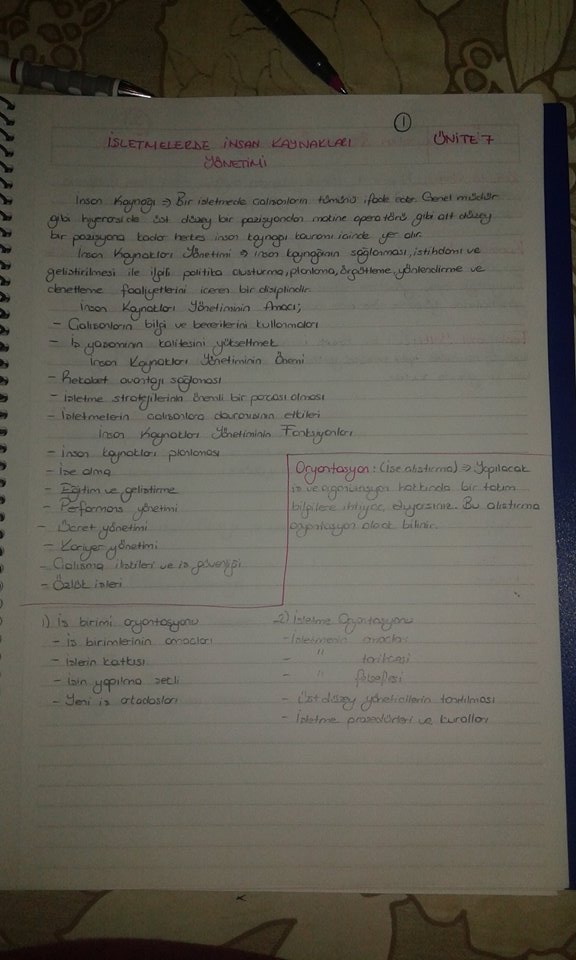 1
İŞLETMELERDE İNSAN KAYNAKLARI
YÖNETİMİ
ÜNİTE 7
İnsan Kaynağı ⇒ Bir işletmede çalışanların tümünü ifade eder. Genel müdür
gibi hiyerarşide üst düzey bir pozisyondan makine operatörü gibi alt düzey
bir pozisyona kadar herkes insan kaynağı kavramı içinde yer alır.
İnsan Kaynakları Yönetimi ⇒ insan kaynağının sağlanması, istihdamı ve
geliştirilmesi ile ilgili politika oluşturma, planlama, örgütleme, yönlendirme ve
denetleme faaliyetlerini içeren bir disiplindir.
İnsan Kaynakları Yönetiminin Amacı;
- Çalışanların bilgi ve becerilerini kullanmaları
- İş yaşamının kalitesini yükseltmek
İnsan Kaynakları Yönetiminin Önemi
- Rekabet avantajı sağlaması
- İşletme stratejilerinin önemli bir parçası olması
- İşletmelerin çalışanlara davranışının etkileri
İnsan Kaynakları Yönetiminin Fonksiyonları
- İnsan kaynakları planlaması
- İşe alma
- Eğitim ve geliştirme
- Performans yönetimi
- Ücret yönetimi
- Kariyer yönetimi
- Çalışma ilişkileri ve iş güvenliği
- Özlük işleri
Oryantasyon: (İşe alıştırma) ⇒ Yapılacak
iş ve organizasyon hakkında bir takım
bilgilere ihtiyaç duyarsınız. Bu alıştırma
oryantasyon olarak bilinir.
1) İş birimi oryantasyonu
- İş birimlerinin amaçları
- İşlerin katkısı
- İşin yapılma şekli
- Yeni iş ortadaşları
2) İşletme Oryantasyonu
- İşletmenin amaçları
- " tarihçesi
- " felsefesi
- Üst düzey yöneticilerin tanıtılması
- İşletme prosedürleri ve kuralları